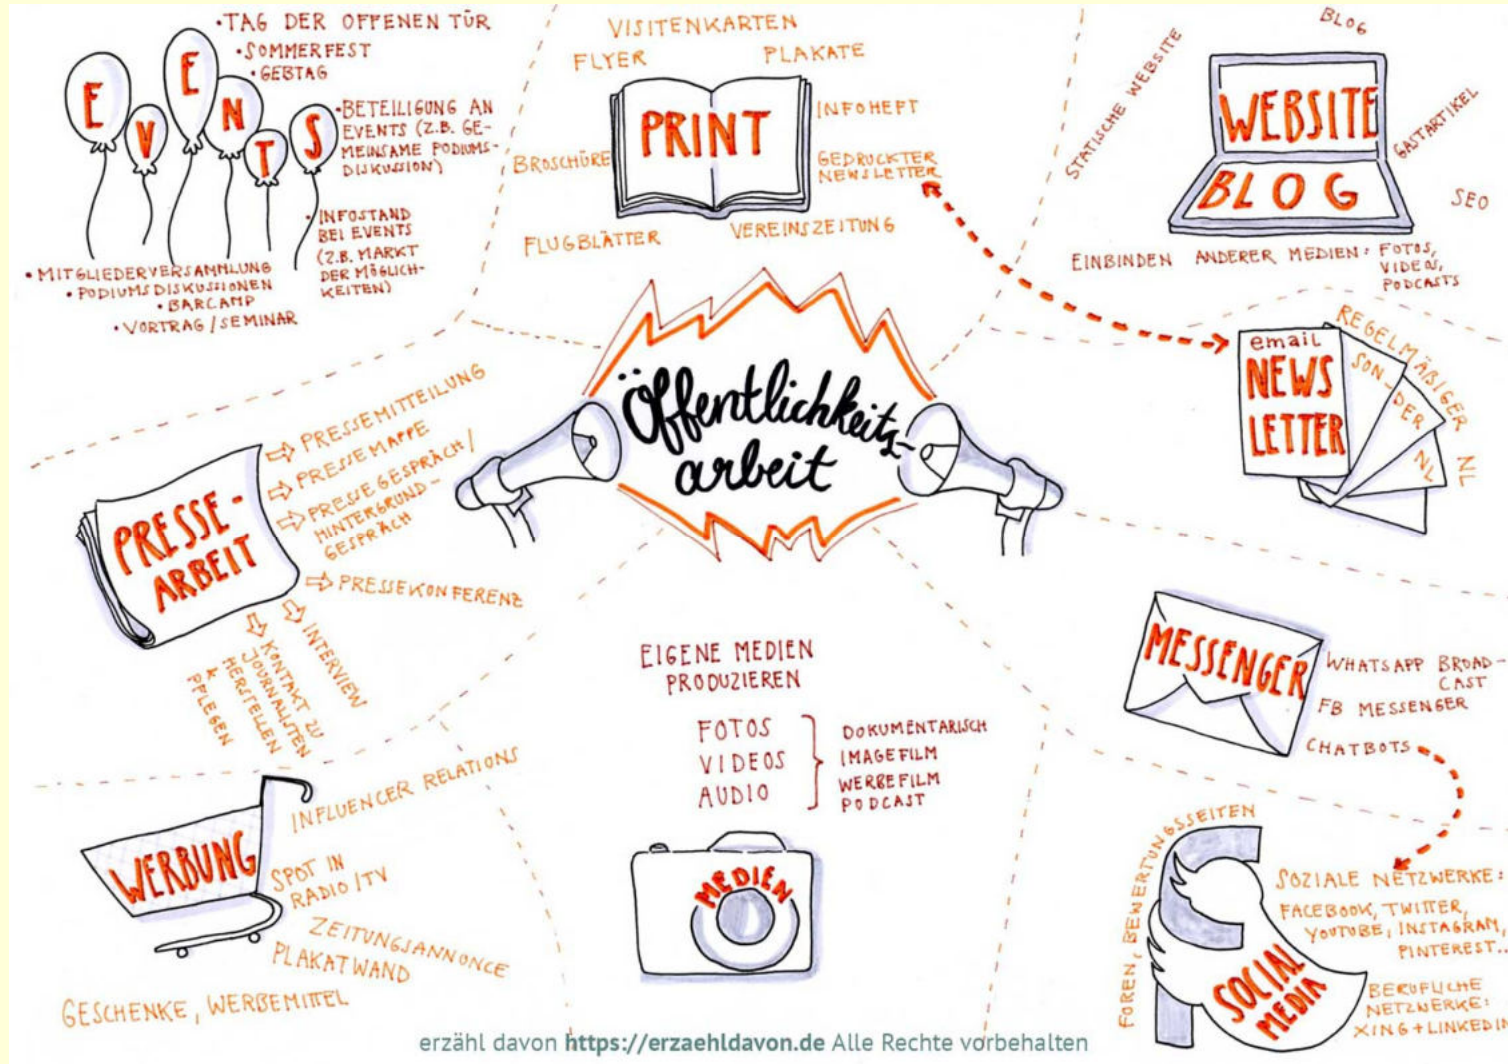 EVENTS
• TAG DER OFFENEN TÜR
• SOMMERFEST
• GEBTAG
• BETEILIGUNG AN
EVENTS (Z.B. GE-
MEINSAME PODIUMS-
DISKUSSION)
• INFOSTAND
BEI EVENTS
(Z.B. MARKT
DER MÖGLICH-
KEITEN)
• MITGLIEDERVERSAMMLUNG
• PODIUMSDISKUSSIONEN
• BARCAMP
• VORTRAG / SEMINAR
VISITENKARTEN
FLYER
PLAKATE
PRINT
INFOHEFT
BROSCHÜRE
GEDRUCKTER
NEWSLETTER
FLUGBLÄTTER
VEREINSZEITUNG
BLOG
STATISCHE WEBSITE
WEBSITE
BLOG
GASTARTIKEL
SEO
EINBINDEN ANDERER MEDIEN: FOTOS,
VIDEOS,
PODCASTS
Öffentlichkeits-
arbeit
email
NEWS
LETTER
REGELMÄßIGER NL
SON-
DER
NL
PRESSE-
ARBEIT
PRESSEMITTEILUNG
PRESSEMAPPE
PRESSEGESPRÄCH /
HINTERGRUND-
GESPRÄCH
PRESSEKONFERENZ
INTERVIEW
KONTAKT ZU
JOURNALISTEN
HERSTELLEN
& PFLEGEN
MESSENGER
WHATSAPP BROAD-
CAST
FB MESSENGER
CHATBOTS
EIGENE MEDIEN
PRODUZIEREN
FOTOS
VIDEOS
AUDIO
DOKUMENTARISCH
IMAGEFILM
WERBEFILM
PODCAST
MEDIEN
WERBUNG
INFLUENCER RELATIONS
SPOT IN
RADIO / TV
ZEITUNGSANNONCE
PLAKATWAND
GESCHENKE, WERBEMITTEL
FOREN, BEWERTUNGSSEITEN
SOCIAL
MEDIA
SOZIALE NETZWERKE:
FACEBOOK, TWITTER,
YOUTUBE, INSTAGRAM,
PINTEREST..
BERUFLICHE
NETZWERKE:
XING + LINKEDIN
erzähl davon https://erzaehldavon.de Alle Rechte vorbehalten